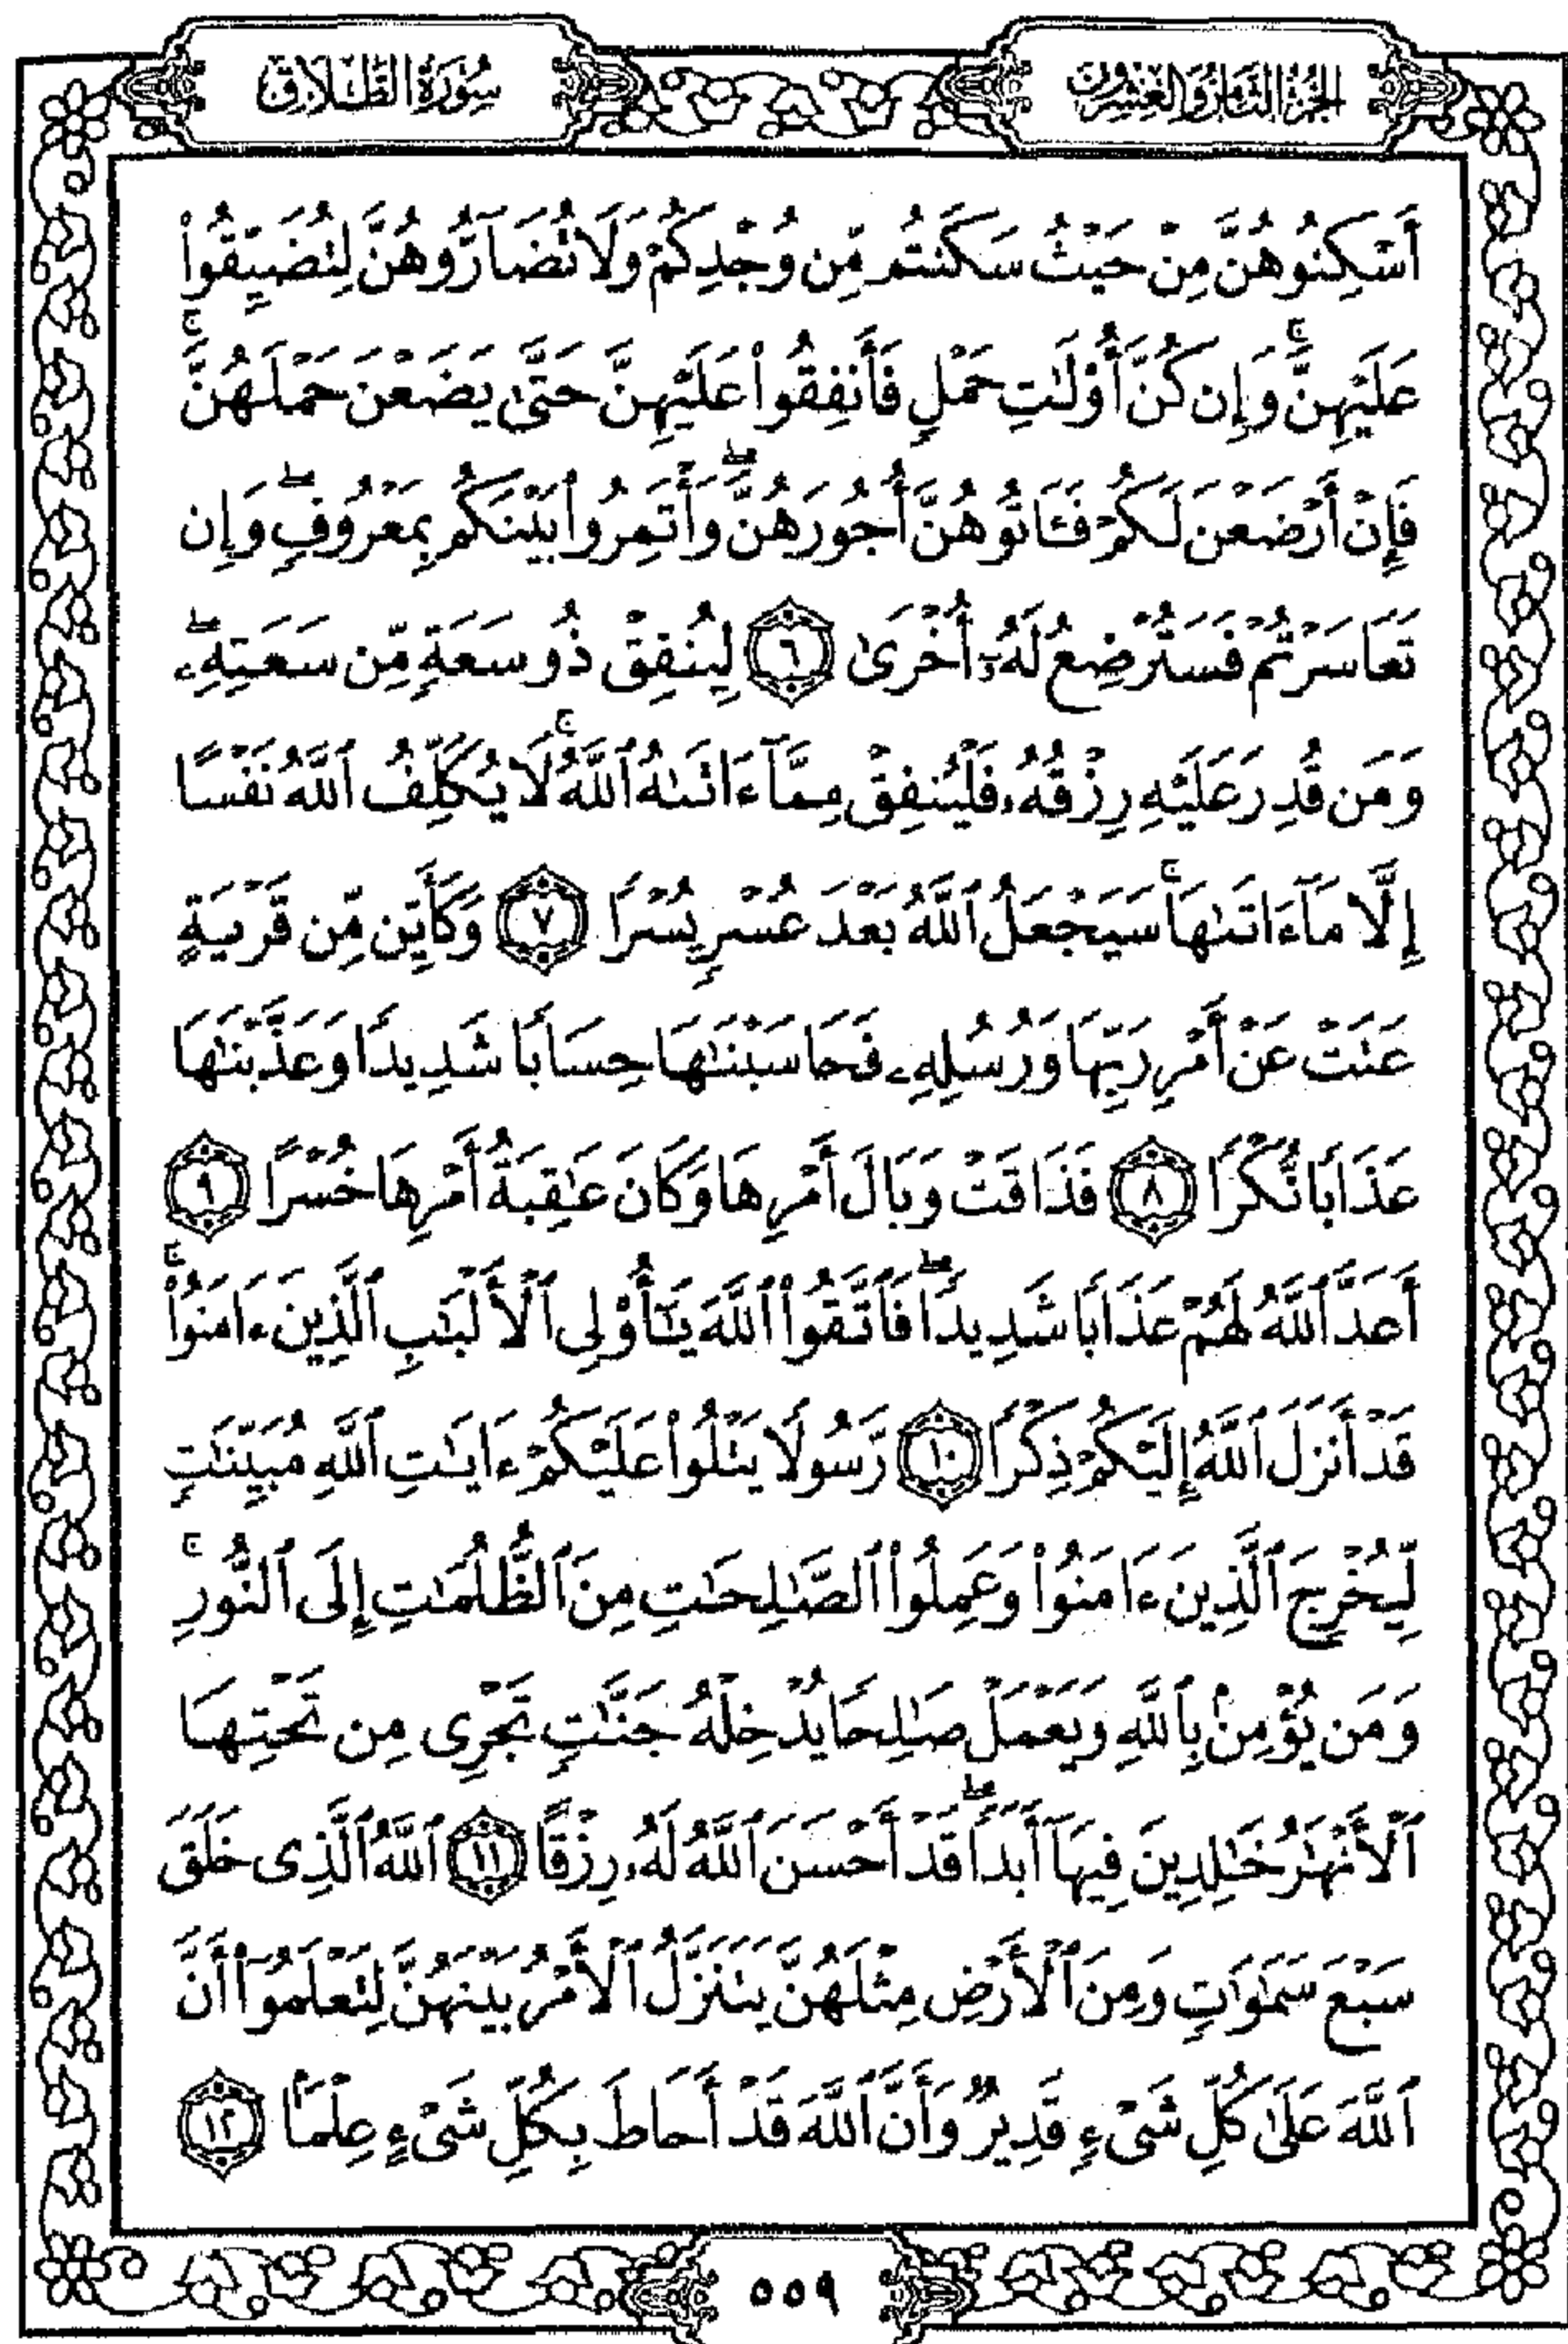 الجزء الثامن والعشرون
سورة الطلاق
أَسْكِنُوهُنَّ مِنْ حَيْثُ سَكَنتُم مِّن وُجْدِكُمْ وَلَا تُضَآرُّوهُنَّ لِتُضَيِّقُوا۟
عَلَيْهِنَّ ۚ وَإِن كُنَّ أُو۟لَـٰتِ حَمْلٍ فَأَنفِقُوا۟ عَلَيْهِنَّ حَتَّىٰ يَضَعْنَ حَمْلَهُنَّ ۚ
فَإِنْ أَرْضَعْنَ لَكُمْ فَـَٔاتُوهُنَّ أُجُورَهُنَّ ۖ وَأْتَمِرُوا۟ بَيْنَكُم بِمَعْرُوفٍ ۖ وَإِن
تَعَاسَرْتُمْ فَسَتُرْضِعُ لَهُۥٓ أُخْرَىٰ ٦ لِيُنفِقْ ذُو سَعَةٍ مِّن سَعَتِهِۦ ۖ
وَمَن قُدِرَ عَلَيْهِ رِزْقُهُۥ فَلْيُنفِقْ مِمَّآ ءَاتَىٰهُ ٱللَّهُ ۚ لَا يُكَلِّفُ ٱللَّهُ نَفْسًا
إِلَّا مَآ ءَاتَىٰهَا ۚ سَيَجْعَلُ ٱللَّهُ بَعْدَ عُسْرٍ يُسْرًا ٧ وَكَأَيِّن مِّن قَرْيَةٍ
عَتَتْ عَنْ أَمْرِ رَبِّهَا وَرُسُلِهِۦ فَحَاسَبْنَـٰهَا حِسَابًا شَدِيدًا وَعَذَّبْنَـٰهَا
عَذَابًا نُّكْرًا ٨ فَذَاقَتْ وَبَالَ أَمْرِهَا وَكَانَ عَـٰقِبَةُ أَمْرِهَا خُسْرًا ٩
أَعَدَّ ٱللَّهُ لَهُمْ عَذَابًا شَدِيدًا ۖ فَٱتَّقُوا۟ ٱللَّهَ يَـٰٓأُو۟لِى ٱلْأَلْبَـٰبِ ٱلَّذِينَ ءَامَنُوا۟ ۚ
قَدْ أَنزَلَ ٱللَّهُ إِلَيْكُمْ ذِكْرًا ١٠ رَّسُولًا يَتْلُوا۟ عَلَيْكُمْ ءَايَـٰتِ ٱللَّهِ مُبَيِّنَـٰتٍ
لِّيُخْرِجَ ٱلَّذِينَ ءَامَنُوا۟ وَعَمِلُوا۟ ٱلصَّـٰلِحَـٰتِ مِنَ ٱلظُّلُمَـٰتِ إِلَى ٱلنُّورِ ۚ
وَمَن يُؤْمِنۢ بِٱللَّهِ وَيَعْمَلْ صَـٰلِحًا يُدْخِلْهُ جَنَّـٰتٍ تَجْرِى مِن تَحْتِهَا
ٱلْأَنْهَـٰرُ خَـٰلِدِينَ فِيهَآ أَبَدًا ۖ قَدْ أَحْسَنَ ٱللَّهُ لَهُۥ رِزْقًا ١١ ٱللَّهُ ٱلَّذِى خَلَقَ
سَبْعَ سَمَـٰوَٰتٍ وَمِنَ ٱلْأَرْضِ مِثْلَهُنَّ يَتَنَزَّلُ ٱلْأَمْرُ بَيْنَهُنَّ لِتَعْلَمُوٓا۟ أَنَّ
ٱللَّهَ عَلَىٰ كُلِّ شَىْءٍ قَدِيرٌ وَأَنَّ ٱللَّهَ قَدْ أَحَاطَ بِكُلِّ شَىْءٍ عِلْمًۢا ١٢
٥٥٩